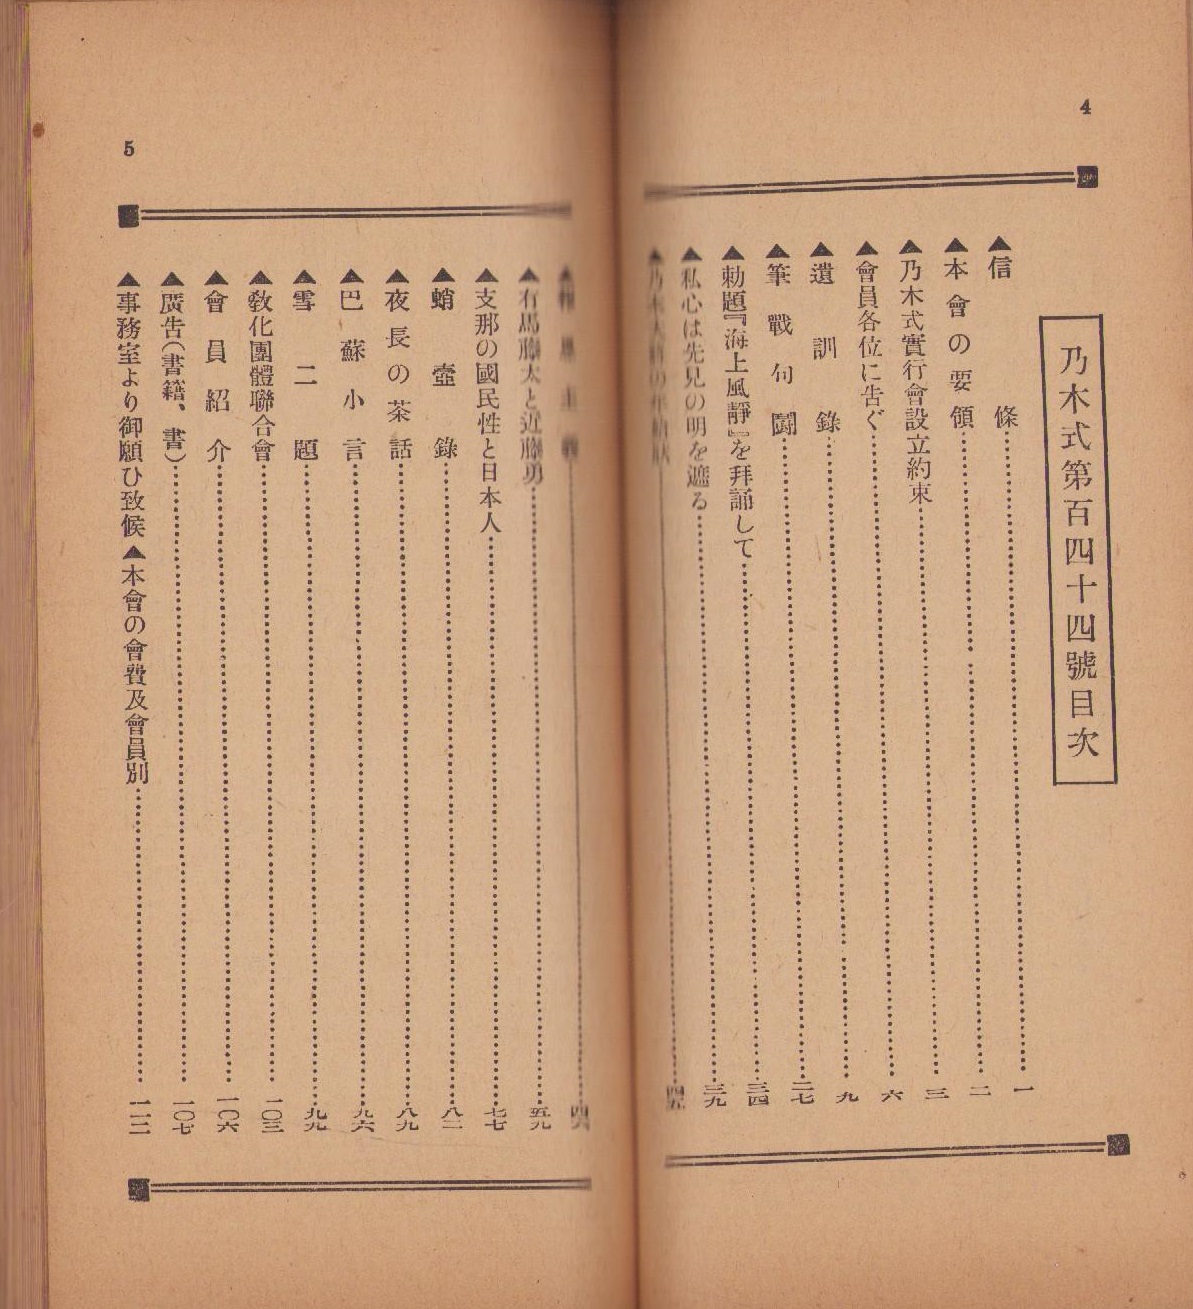 4
乃木式第百四十四號目次
▲信條 一
▲本會の要領 二
▲乃木式實行會設立約束 三
▲會員各位に告ぐ 六
▲遺訓錄 九
▲筆戰句鬪 二七
▲勅題『海上風靜』を拜誦して 三四
▲私心は先見の明を遮る 三九
▲乃木大將の年賀狀
5
▲有馬藤太と近藤勇 五九
▲支那の國民性と日本人 七七
▲蛸壺錄 八二
▲夜長の茶話 八九
▲巴蘇小言 九六
▲雪二題 九九
▲敎化團體聯合會 一〇三
▲會員紹介 一〇六
▲廣吿(書籍、書) 一〇七
▲事務室より御願ひ致候▲本會の會費及會員別 一一二